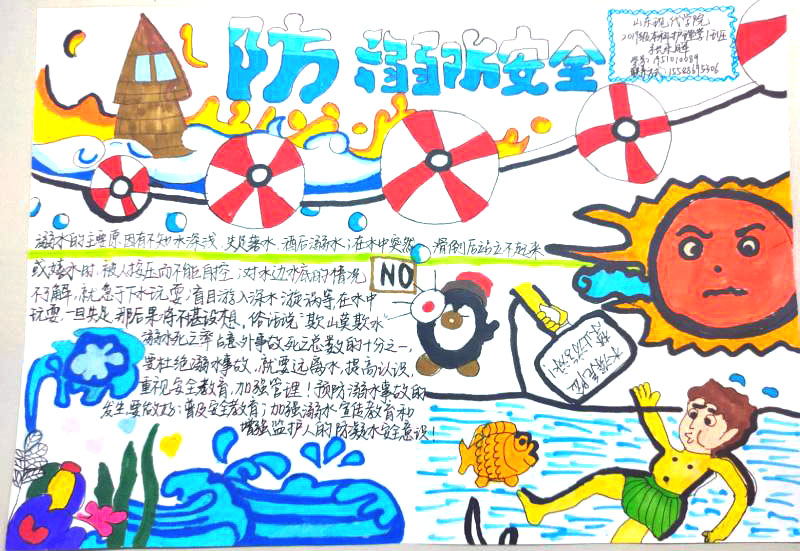 防溺水安全
山东现代学院
溺水的主要原因有不知水深浅,失足落水,酒后溺水;在水中突然滑倒后站立不起来
或嬉水时,被人挤压而不能自控;对水边水底的情况
不了解,就急于下水玩耍;盲目游入深水漩涡等,在水中
玩耍,一旦失足,那后果将不堪设想,俗话说"欺山莫欺水"
溺水死亡率占意外事故死亡总数的十分之一,
要杜绝溺水事故,就要远离水,提高认识,
重视安全教育,加强管理!预防溺水事故的
发生要做好:普及安全教育;加强溺水宣传教育和
增强监护人的防溺水安全意识!
NO